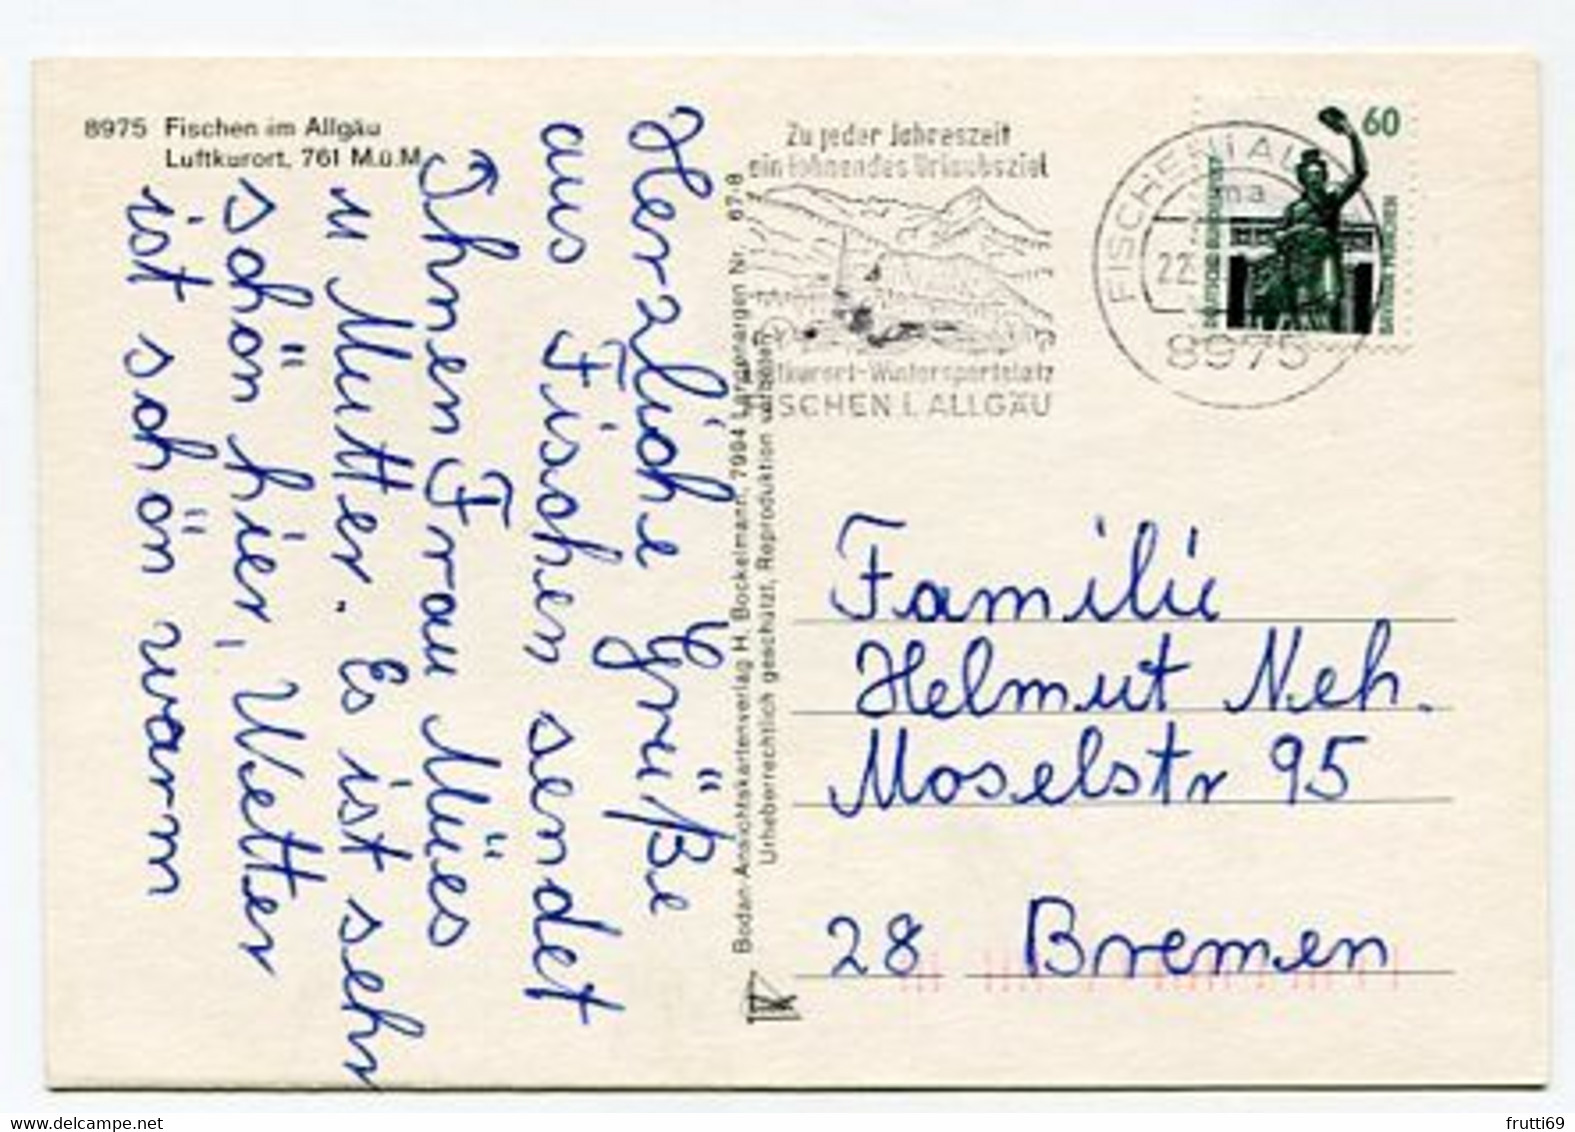 8975 Fischen im Allgäu
Luftkurort, 761 M.ü.M.
Herzliche Grüße
aus Fischen sendet
Ihnen Frau Mües
u Mutter. Es ist sehr
schön hier, Wetter
ist schön warm
Bodan-Ansichtskartenverlag H. Bockelmann, 7994 Langenargen Nr. 67-8
Urheberrechtlich geschützt, Reproduktion verboten
Zu jeder Jahreszeit
ein lohnendes Urlaubsziel
Luftkurort-Wintersportplatz
FISCHEN I. ALLGÄU
FISCHEN i ALLG
ma
22.
8975
60
DEUTSCHE BUNDESPOST
BAVARIA MÜNCHEN
Familie
Helmut Neh.
Moselstr 95
28 Bremen
frutti69